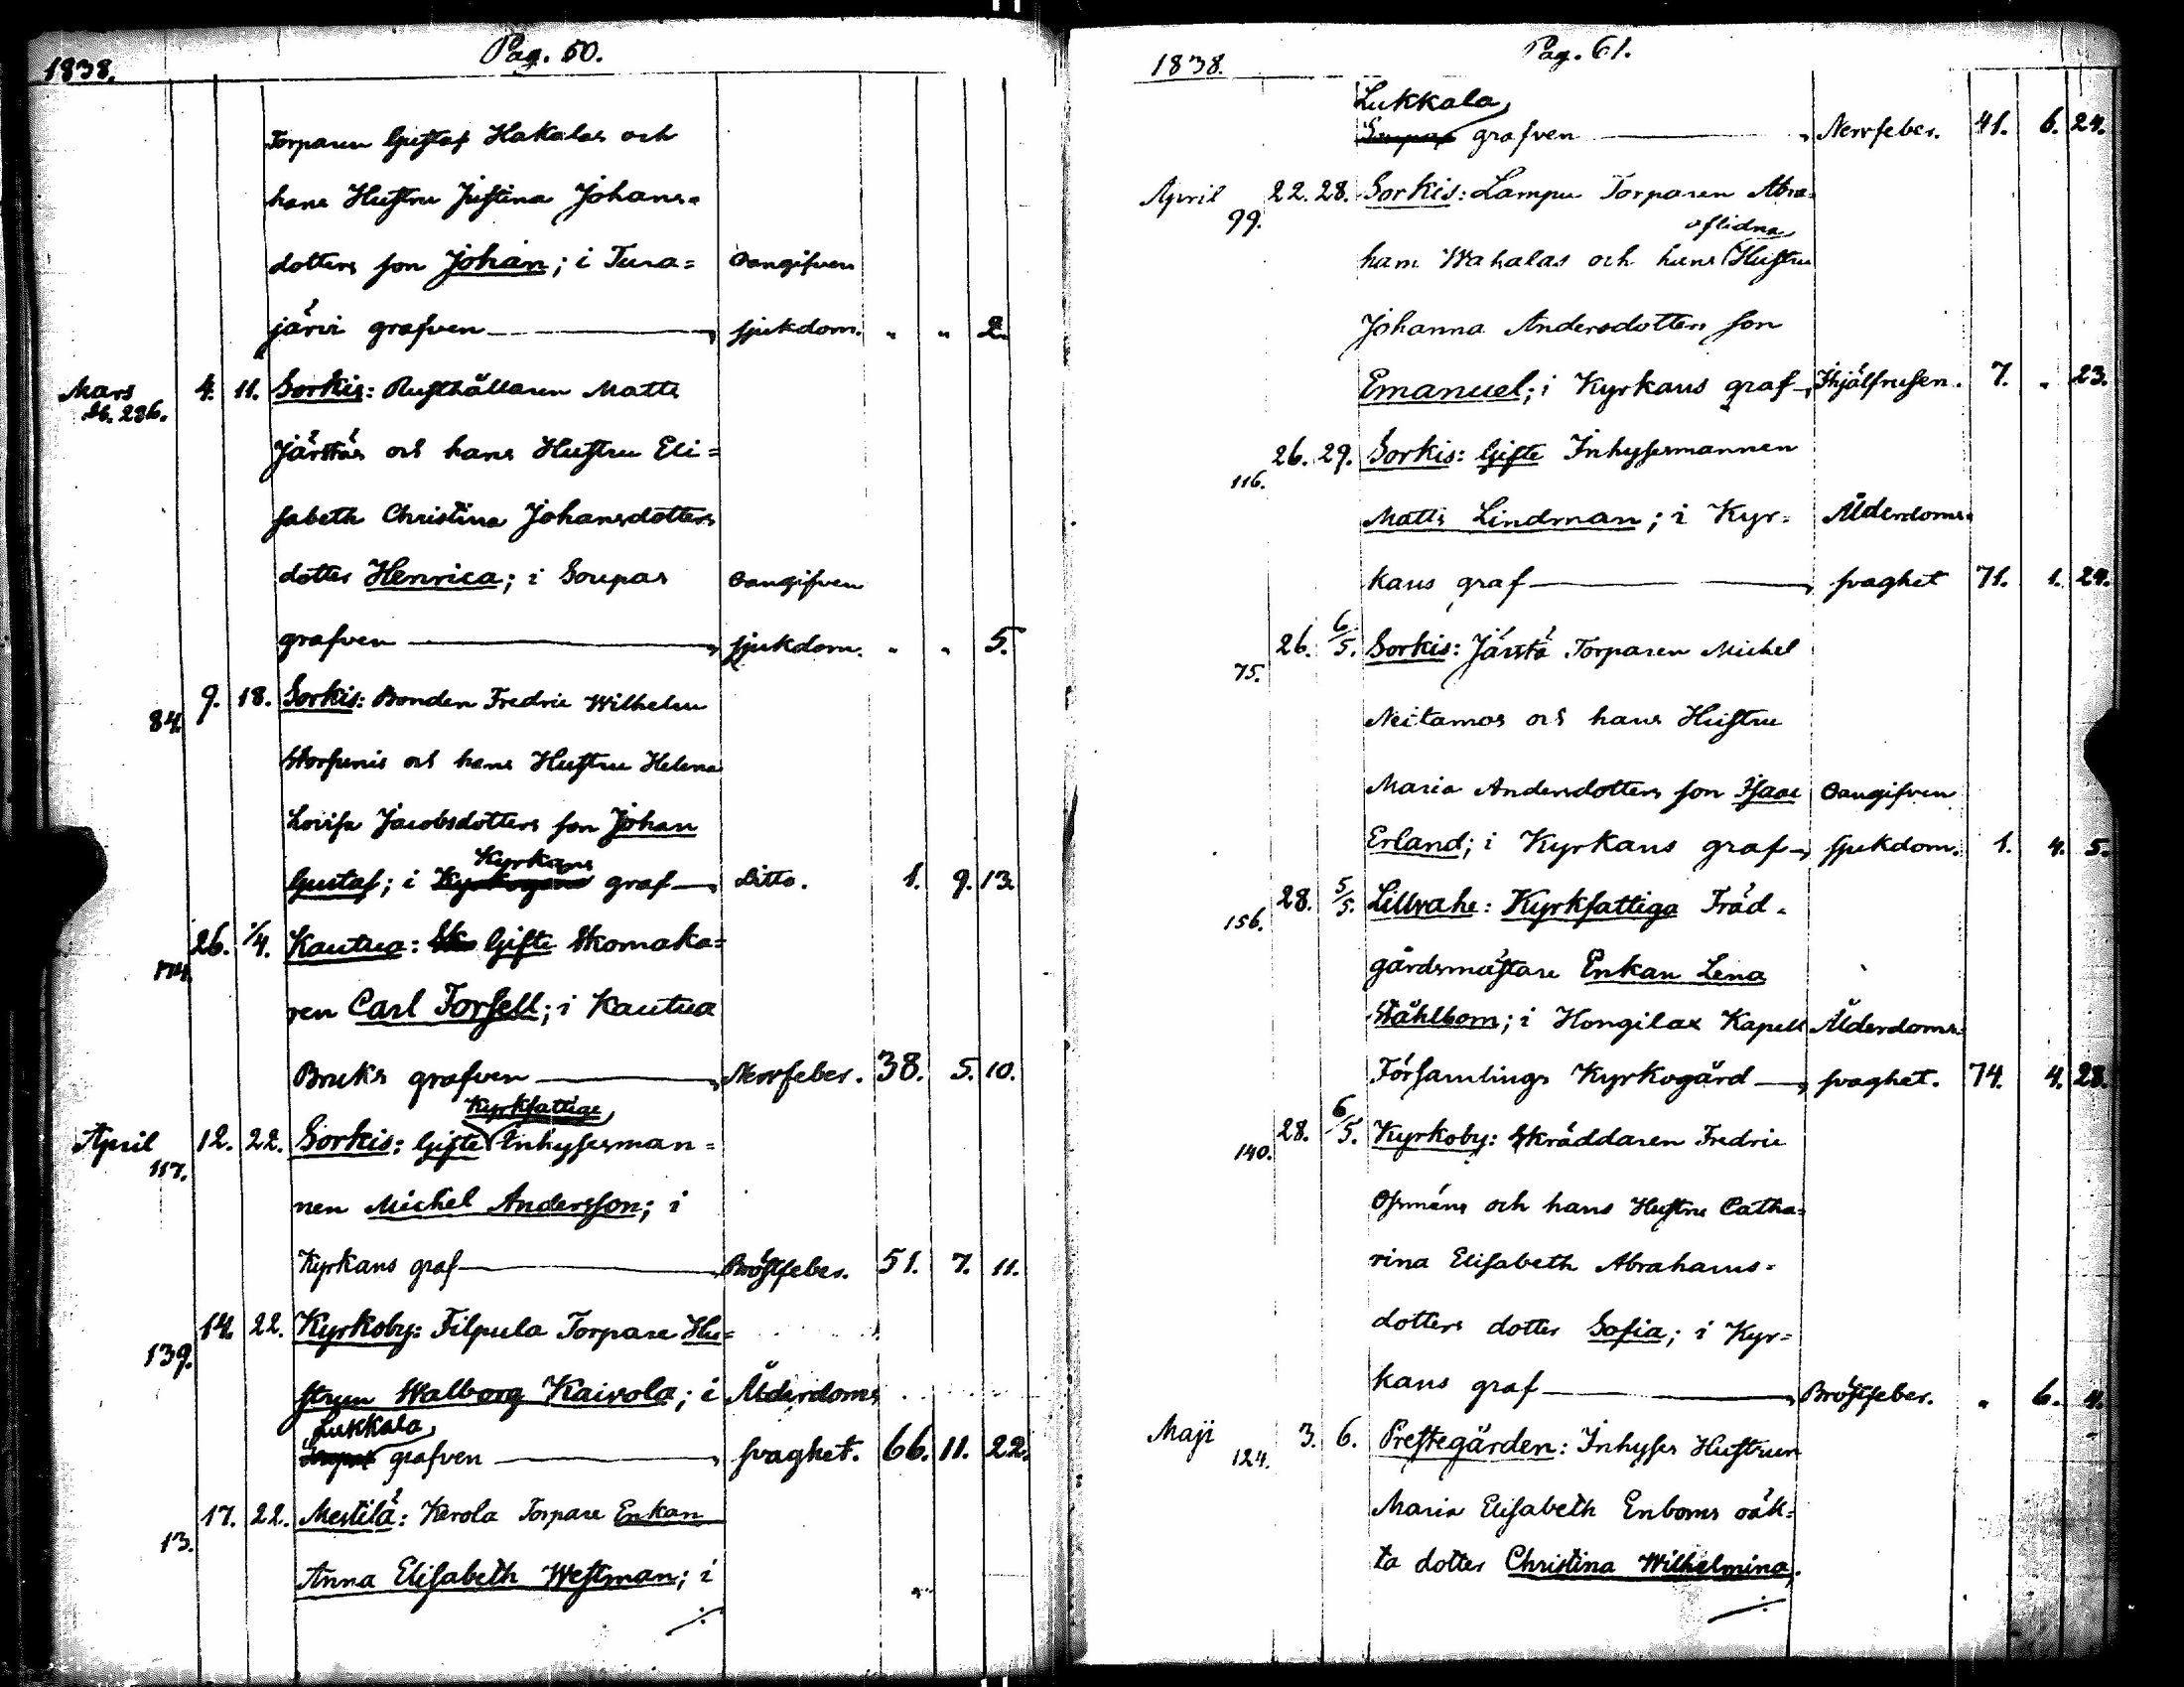 1838. Pag. 60.
Torparen Gustaf Hakalas och
hans Hustru Justina Johans=
dotters son Johan; i Tura= Oangifven
järvi grafven — sjukdom. " " 2.
Mars 4. 11. Sorkis: Rusthållaren Matts
St. 286.
Järstäs och hans Hustru Eli=
sabeth Christina Johansdotters
dotter Henrica; i Soupas Oangifven
grafven — sjukdom. " " 5.
84. 9. 18. Sorkis: Bonden Fredric Wilhelm
Storfunis och hans Hustru Helena
Lovisa Jacobsdotters son Johan
Kyrkans
Gustaf; i Kyrkogård graf — Ditto. 1. 9. 13.
26. 1/4. Kautua: Sko Gifte Skomaka=
174.
ren Carl Forsell; i Kautua
Bruks grafven — Nervfeber. 38. 5. 10.
Kyrkfattige
April 12. 22. Sorkis: Gifte Inhysesman=
117.
nen Michel Andersson; i
Kyrkans graf — Bröstfeber. 51. 7. 11.
14. 22. Kyrkoby: Filpula Torpare Hu=
139.
strun Walborg Kaivola; i Ålderdoms
Lukkala
Soupas grafven — svaghet. 66. 11. 22.
17. 22. Mestilä: Kerola Torpare Enkan
13.
Anna Elisabeth Westman; i
./.
1838. Pag. 61.
Lukkala
Soupas grafven — Nervfeber. 41. 6. 24.
April 22. 28. Sorkis: Lampu Torparen Abra=
99.
aflidna
ham Wahalas och hans Hustru
Johanna Andersdotters son
Emanuel; i Kyrkans graf — Ihjälfrusen. 7. " 23.
26. 29. Sorkis: Gifte Inhysesmannen
116.
Matts Lindman; i Kyr= Ålderdoms=
kans graf — svaghet 71. 1. 24.
26. 6/5. Sorkis: Järstä Torparen Michel
75.
Neitamos och hans Hustru
Maria Andersdotters son Isaac Oangifven
Erland; i Kyrkans graf — sjukdom. 1. 4. 5.
28. 5/5. Lillvahe: Kyrkfattiga Träd=
156.
gårdsmästare Enkan Lena
Ståhlbom; i Hongilax Kapell Ålderdoms=
Församlings Kyrkogård — svaghet. 74. 4. 28.
28. 6/5. Kyrkoby: Skräddaren Fredric
140.
Osmáns och hans Hustru Catha=
rina Elisabeth Abrahams=
dotters dotter Sofia; i Kyr=
kans graf — Bröstfeber. " 6. 4.
Maji 3. 6. Prestegården: Inhyses Hustrun
124.
Maria Elisabeth Enboms oäk=
ta dotter Christina Wilhelmina;
./.